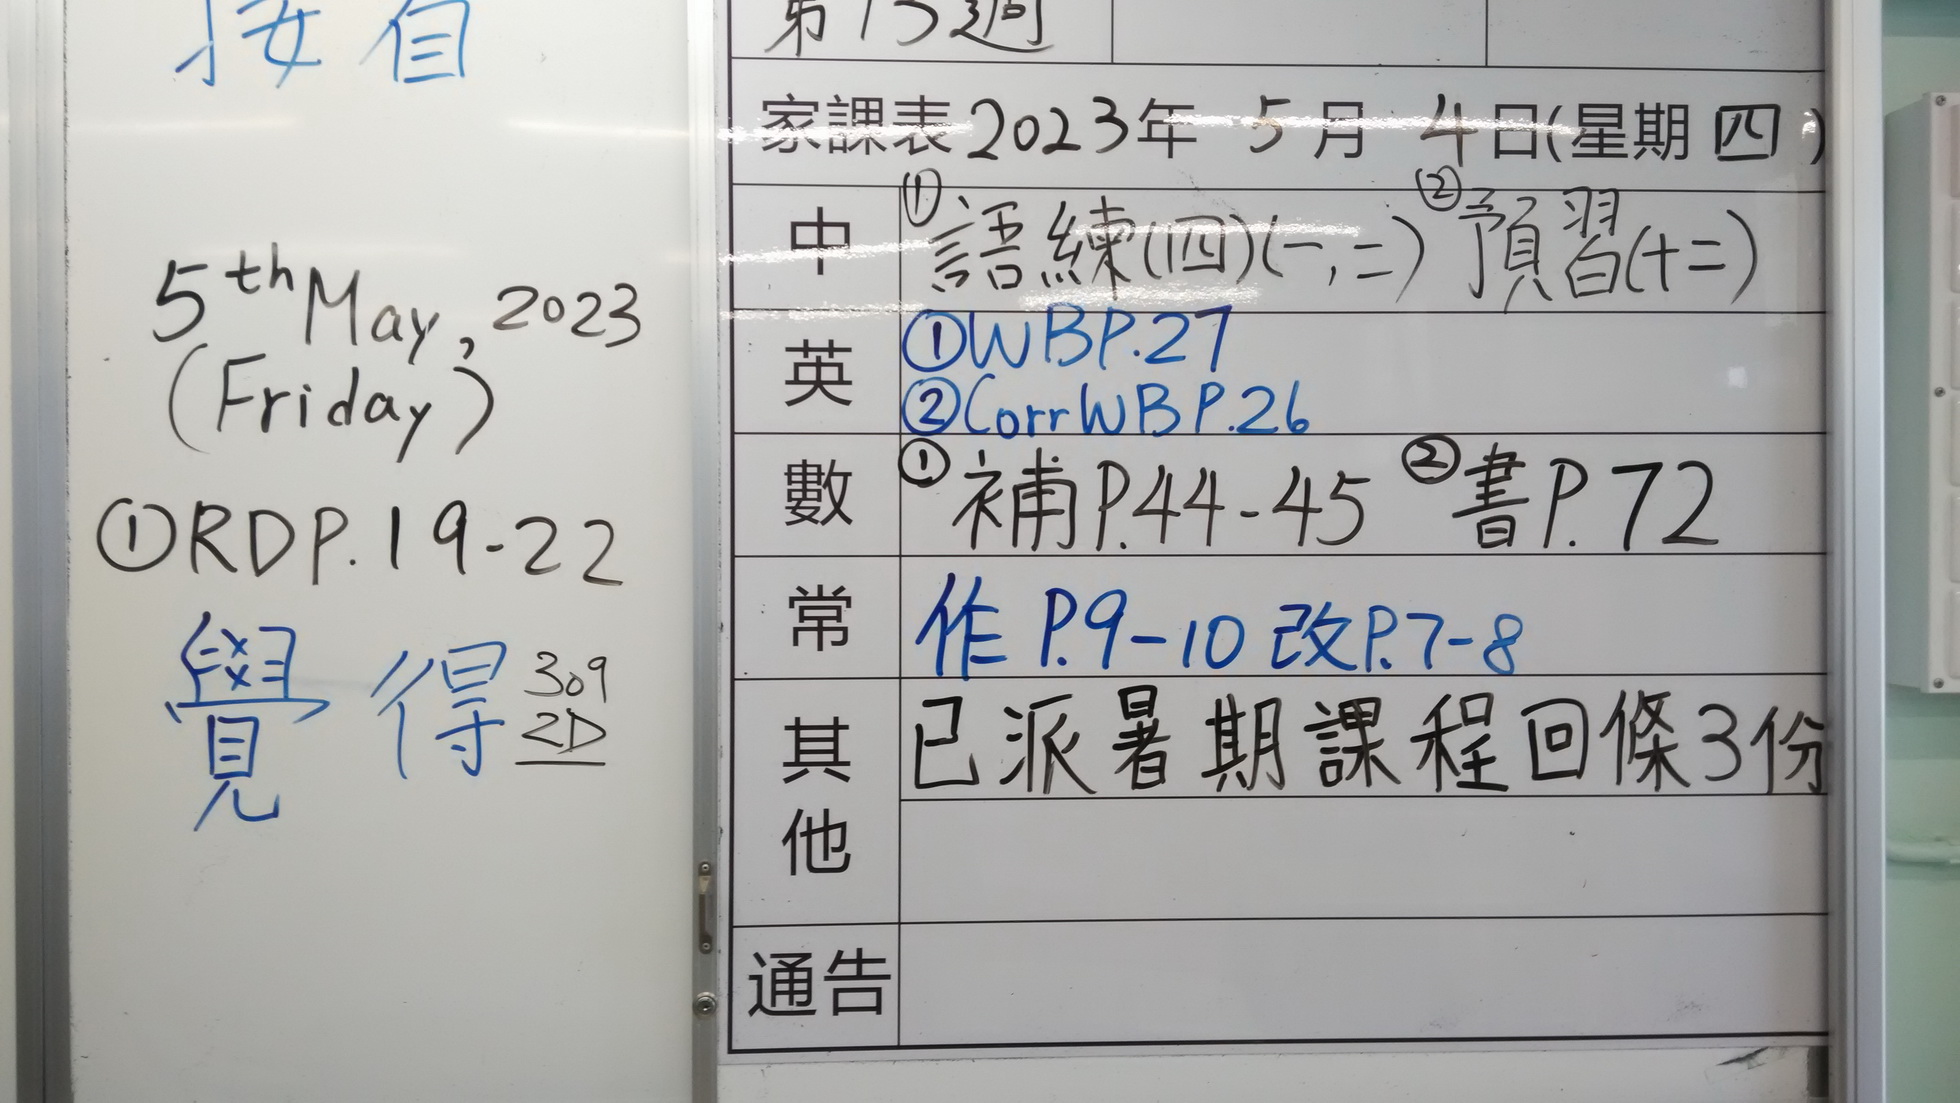 5th May, 2023
(Friday)
①RDP.19-22
覺得 309
2D
第13週
家課表2023年5月4日(星期四)
中 ①語練(四)(一,二) ②預習(十二)
英 ①WBP.27
②CorrWBP.26
數 ①補P.44-45 ②書P.72
常 作P.9-10 改P.7-8
其他 已派暑期課程回條3份
通告